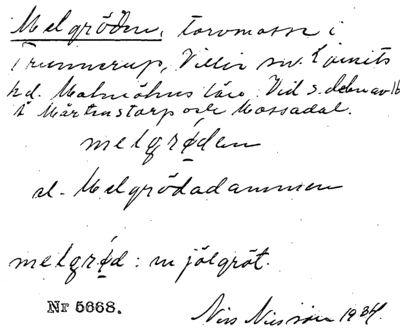 Melgröden, torvmosse i
Trunnerup, Villie sn. Ljunits
hd. Malmöhus län. Vid s. delen av lb
t Mårtenstorp och Mossadal.
melgrøden
el. Melgrödadammen
melgrǿd : mjölgröt.
Nr 5668.
Nils Nilsson 1934.